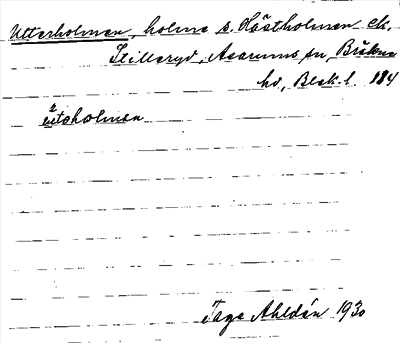 Utterholmen, holme s. Hästholmen ek.
Stilleryd, Asarums sn, Bräkne
hd, Blek. l. 184
2
utoholmen
Tage Ahldén 1930